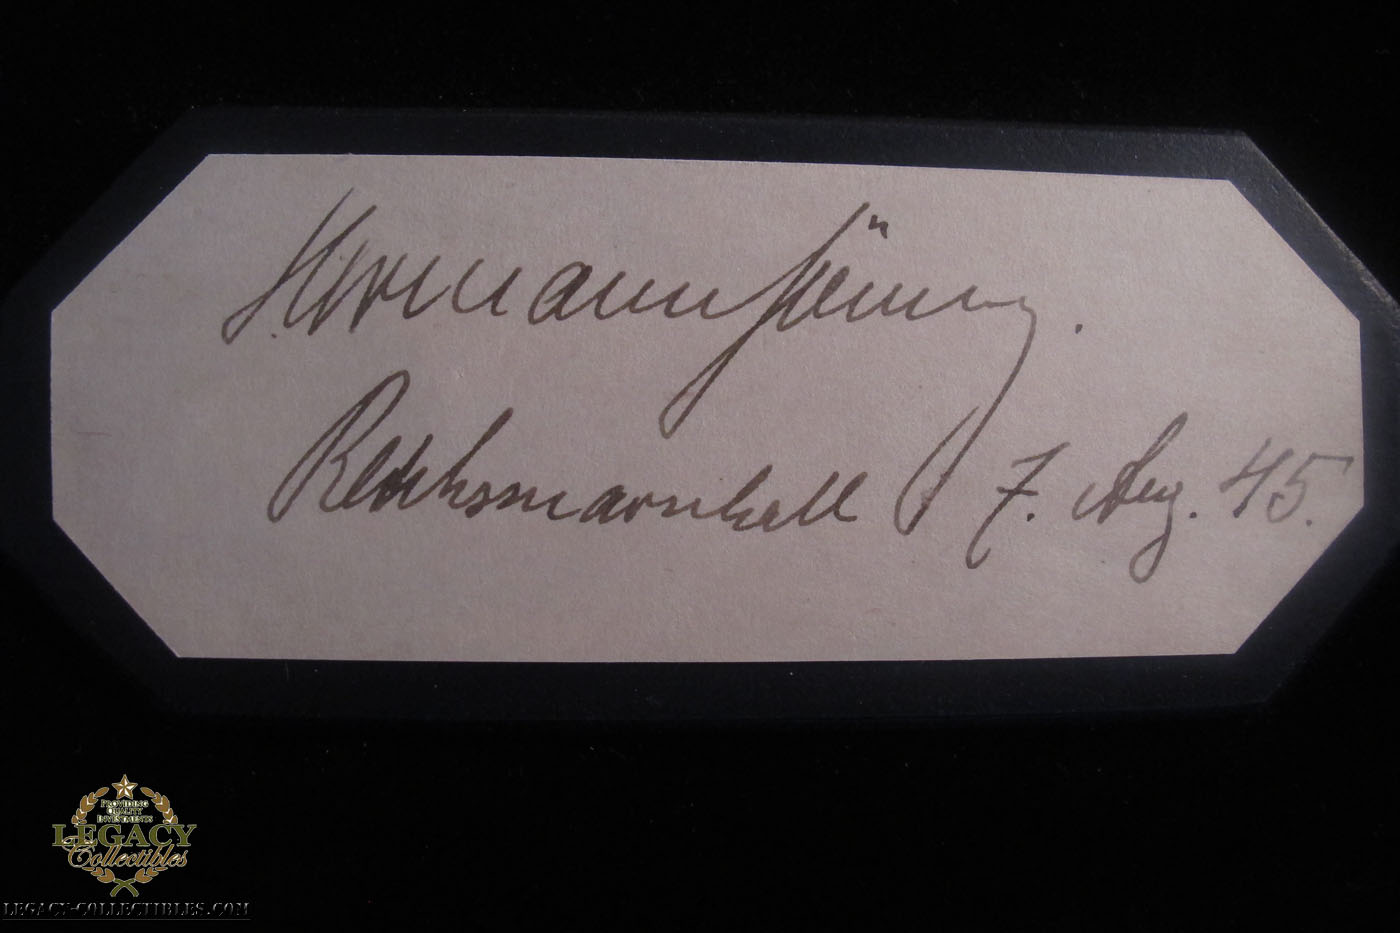 Hermann Göring.
Reichsmarschall 7. Aug. 45.
PROVIDING
QUALITY
INVESTMENTS
LEGACY
Collectibles
LEGACY-COLLECTIBLES.COM